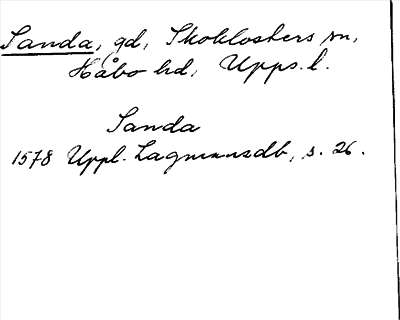 Sanda, gd, Skoklosters sn,
Håbo hd, Upps. l.
Sanda
1578 Uppl. Lagmansdb, s. 26.